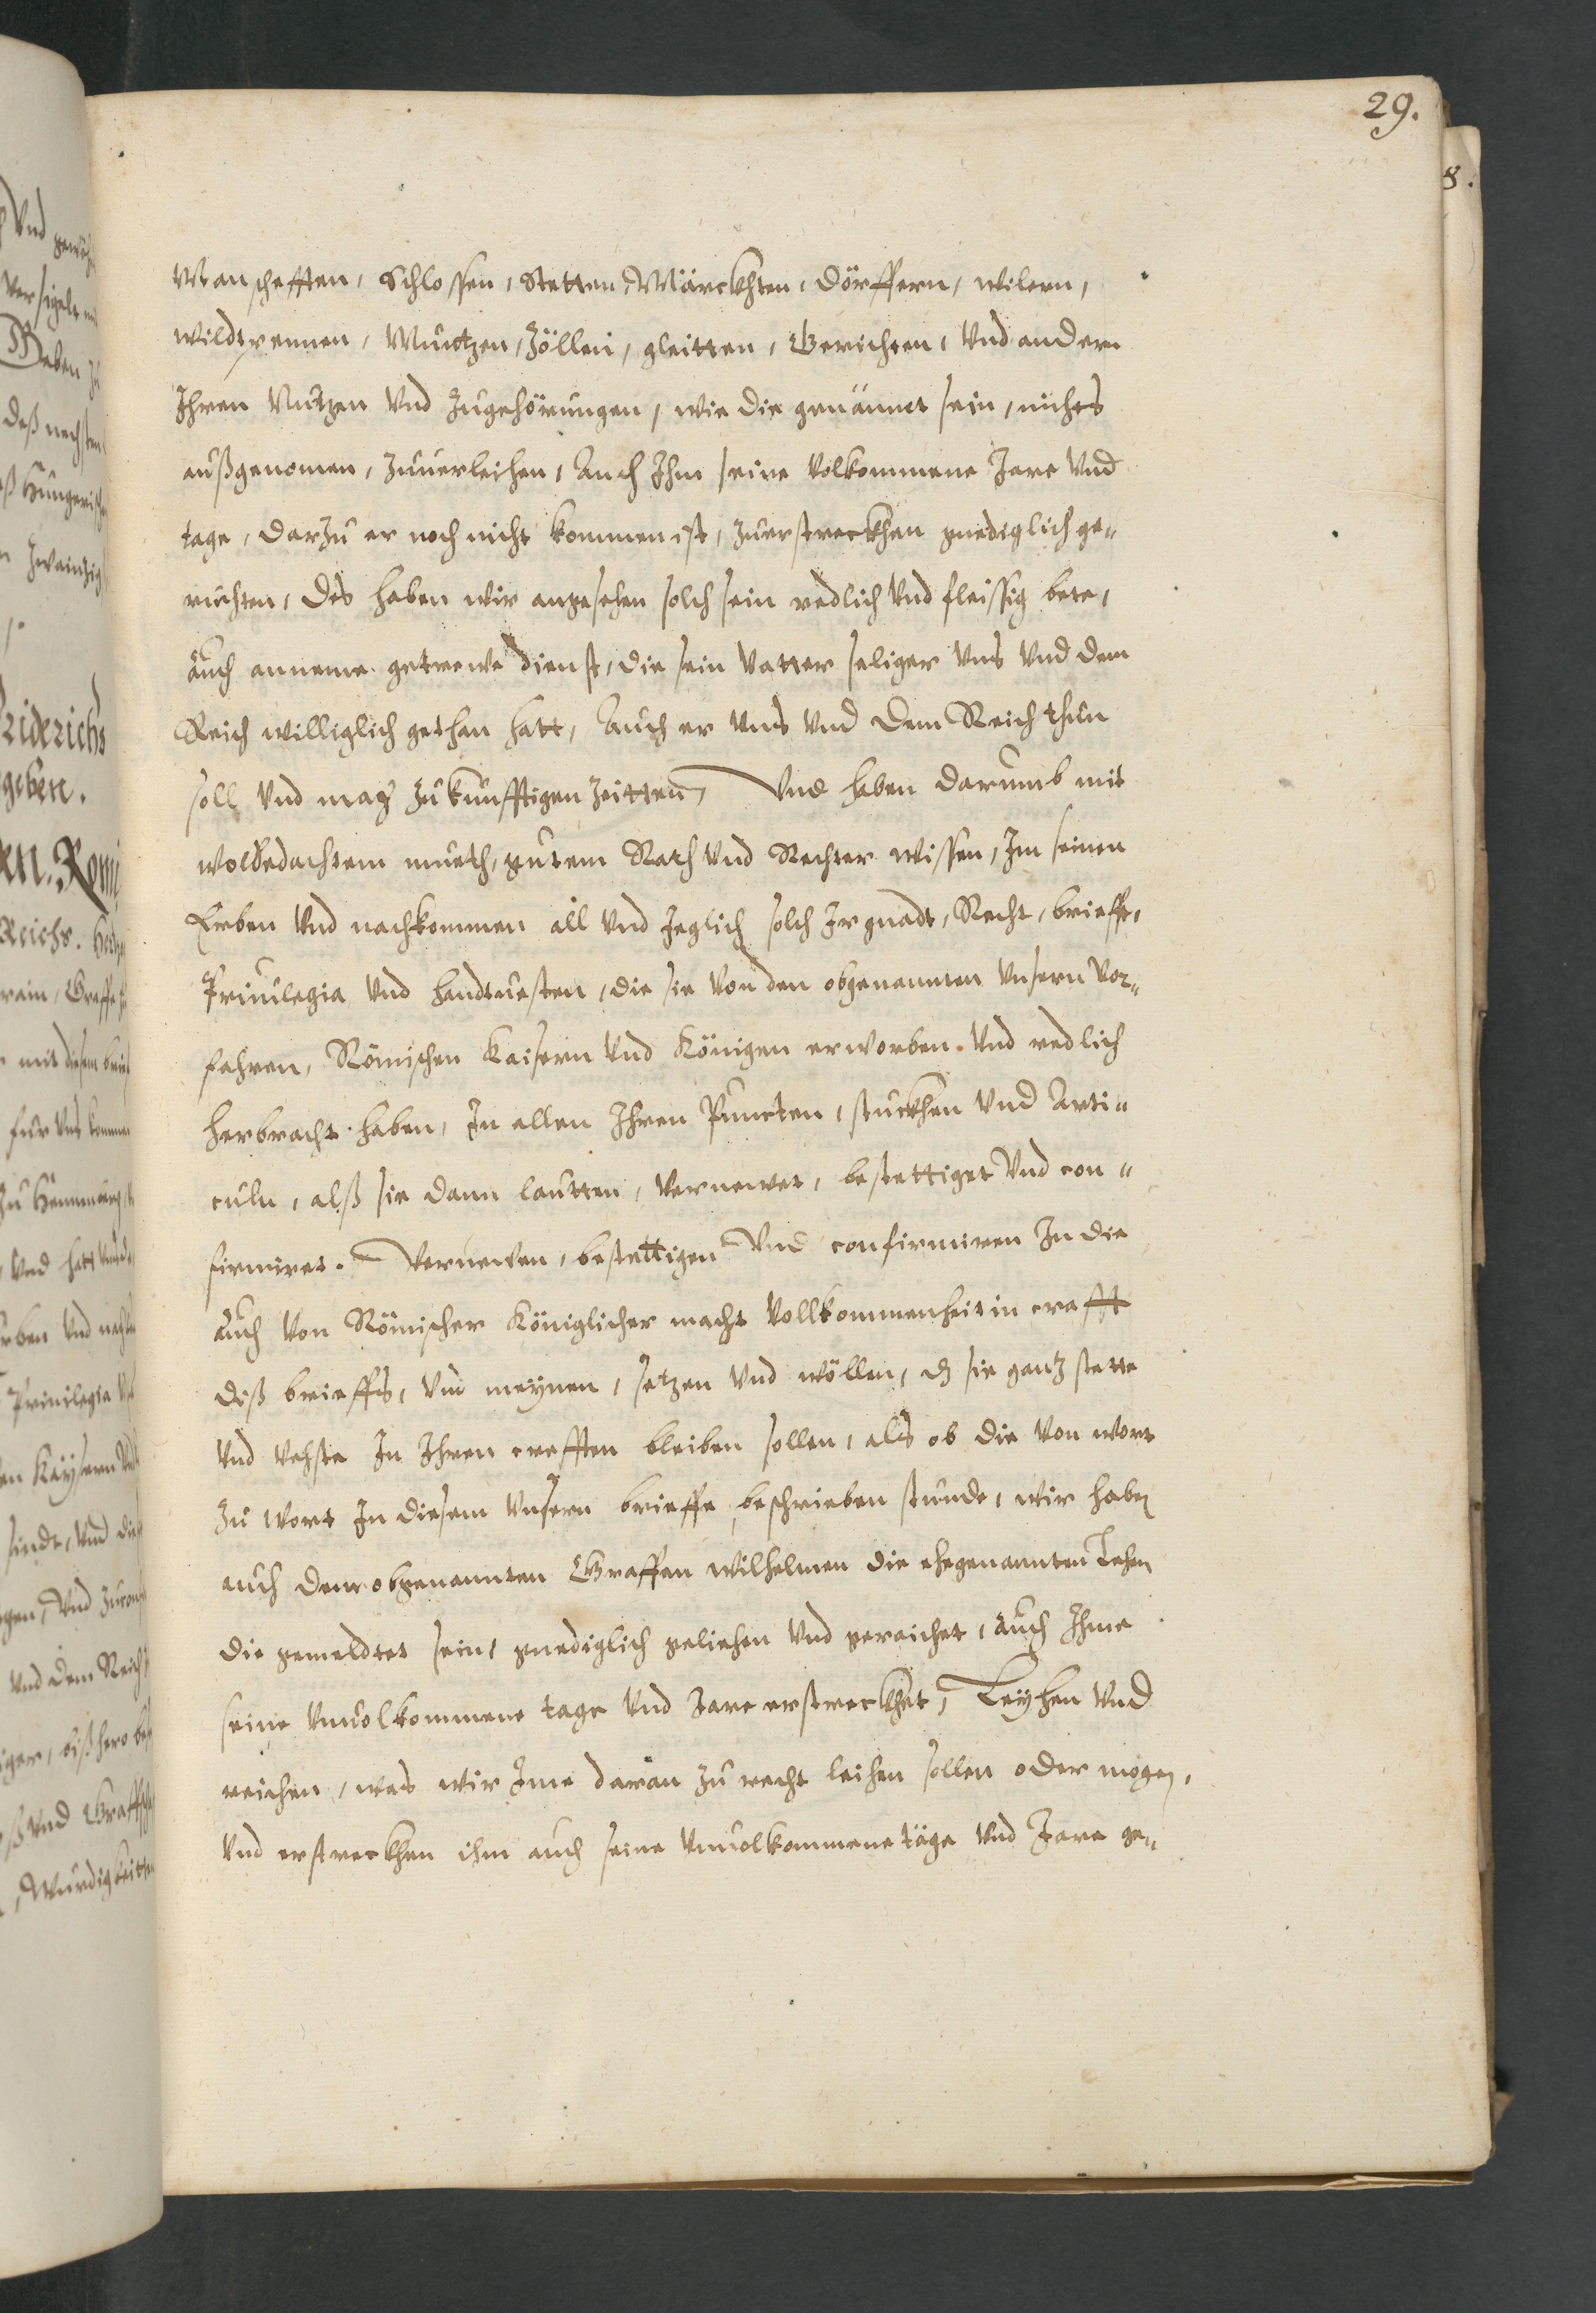 29.
Manschefften, Schlossen, Stetten, Märckhten, dörffern, wilern,
wildtpennen, Müntzen, Zöllen, gleitten, Gerichten, Und andern
Ihren Nutzen Und Zugehörungen, wie die genännet sein, nichts
außgenomen, Zuuerleihen, Auch Ihm seine Volkommene Jare Und
tage, darzu er noch nicht kommen ist, zuerstreckhen gnediglich ge„
ruchten, des haben wir angesehen solch sein redlich Und fleissig bete,
auch anneme getrewe dienst, die sein Vatter seliger Uns Und dem
Reich williglich gethan hatt, Auch er Uns Und dem Reich thun
soll Und mag zukünfftigen Zeitten, Und haben darumb mit
wolbedachtem mueth, gutem Rath Und Rechter wissen, Im seinen
Erben Und nachkommen all Und Jeglich solch Ir gnadt, Recht, brieffe,
Priuilegia Und handtuesten, die sie Von den obgenannten Unsern Vor„
fahren, Römischen Kaisern Und Königen erworben. Und redlich
herbracht haben, In allen Ihren Puncten, stuckhen Und Arti„
culn, alß sie dann lautten, Vernewet, bestettiget Und con„
firmiret. Vernewen, bestettigen Und confirmiren In die
auch Von Römischer Königlicher macht Vollkommenheit in crafft
diß brieffs, Und meynen, setzen Und wöllen, dz sie gantz stette
Und Vehste In Ihren crefften bleiben sollen, als ob die Von wort
zu wort In diesem Unsern brieffe beschrieben stunde, wir haben
auch dem obgenannten Graffen Wilhelmen die ehegenannten Lehen
die gemeldtet sein, gnediglich geliehen Und gereichet, auch Ihme
seine Unuolkommene tage Und Jare erstreckhet, Leyhen Und
reichen, was wir Ime daran zu recht leihen sollen oder mögen,
Und erstreckhen ihm auch seine Unuolkommene täge Und Jare ge„